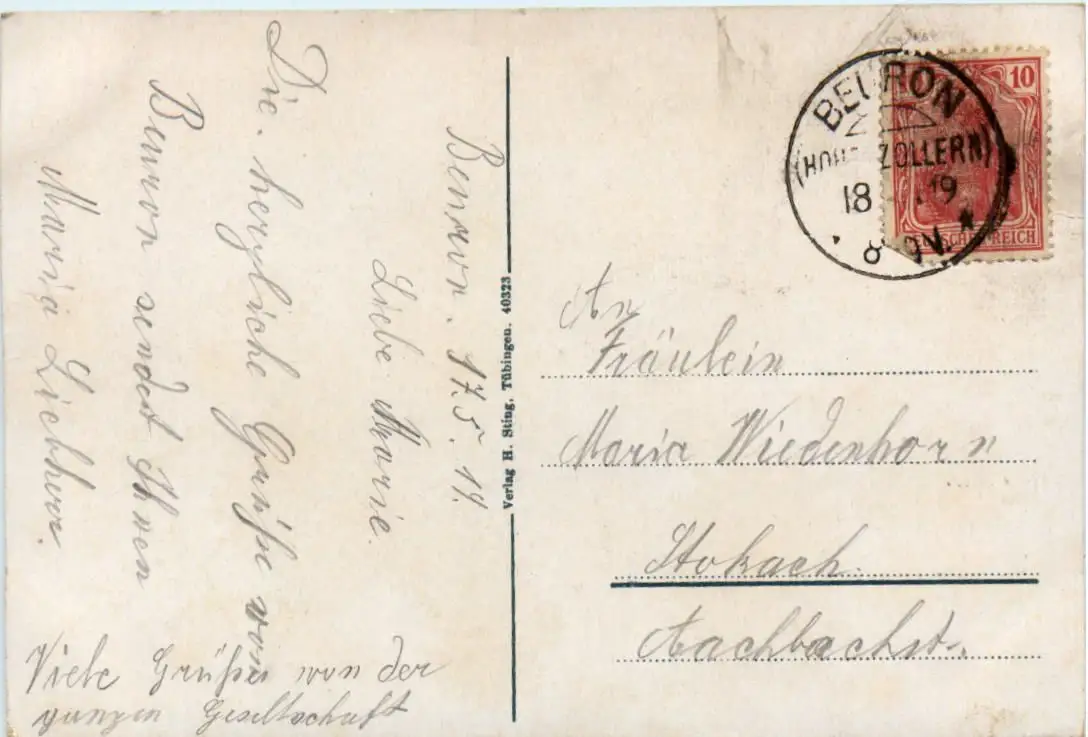 Beuron. 17.5.19.
Liebe Marie.
Die herzliche Grüße von
Beuron sendet Ihnen
Maria
Viele Grüße von der
ganzen Gesellschaft
Verlag H. Sting, Tübingen. 40323
BEURON
(HOHENZOLLERN)
18 .19
8 N.
10
An
Fräulein
Maria Wiedenhorn
Stokach.
Aachbachstr.